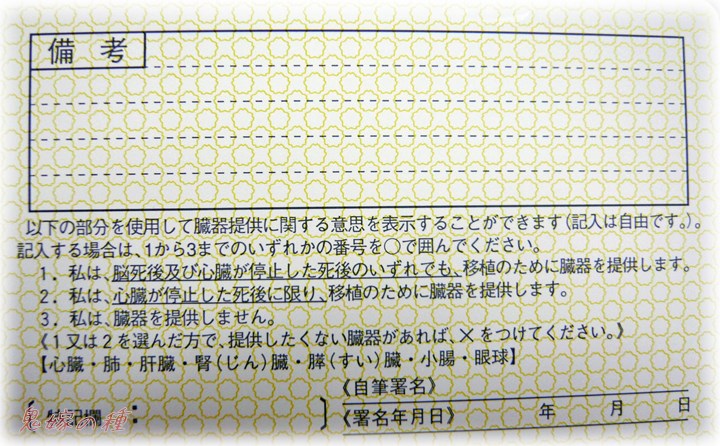 備考
以下の部分を使用して臓器提供に関する意思を表示することができます(記入は自由です。)。
記入する場合は、1から3までのいずれかの番号を○で囲んでください。
1. 私は、脳死後及び心臓が停止した死後のいずれでも、移植のために臓器を提供します。
2. 私は、心臓が停止した死後に限り、移植のために臓器を提供します。
3. 私は、臓器を提供しません。
《1又は2を選んだ方で、提供したくない臓器があれば、×をつけてください。》
【心臓・肺・肝臓・腎(じん)臓・膵(すい)臓・小腸・眼球】
《自筆署名》
〔特記欄: 〕
《署名年月日》 年 月 日
鬼嫁の種